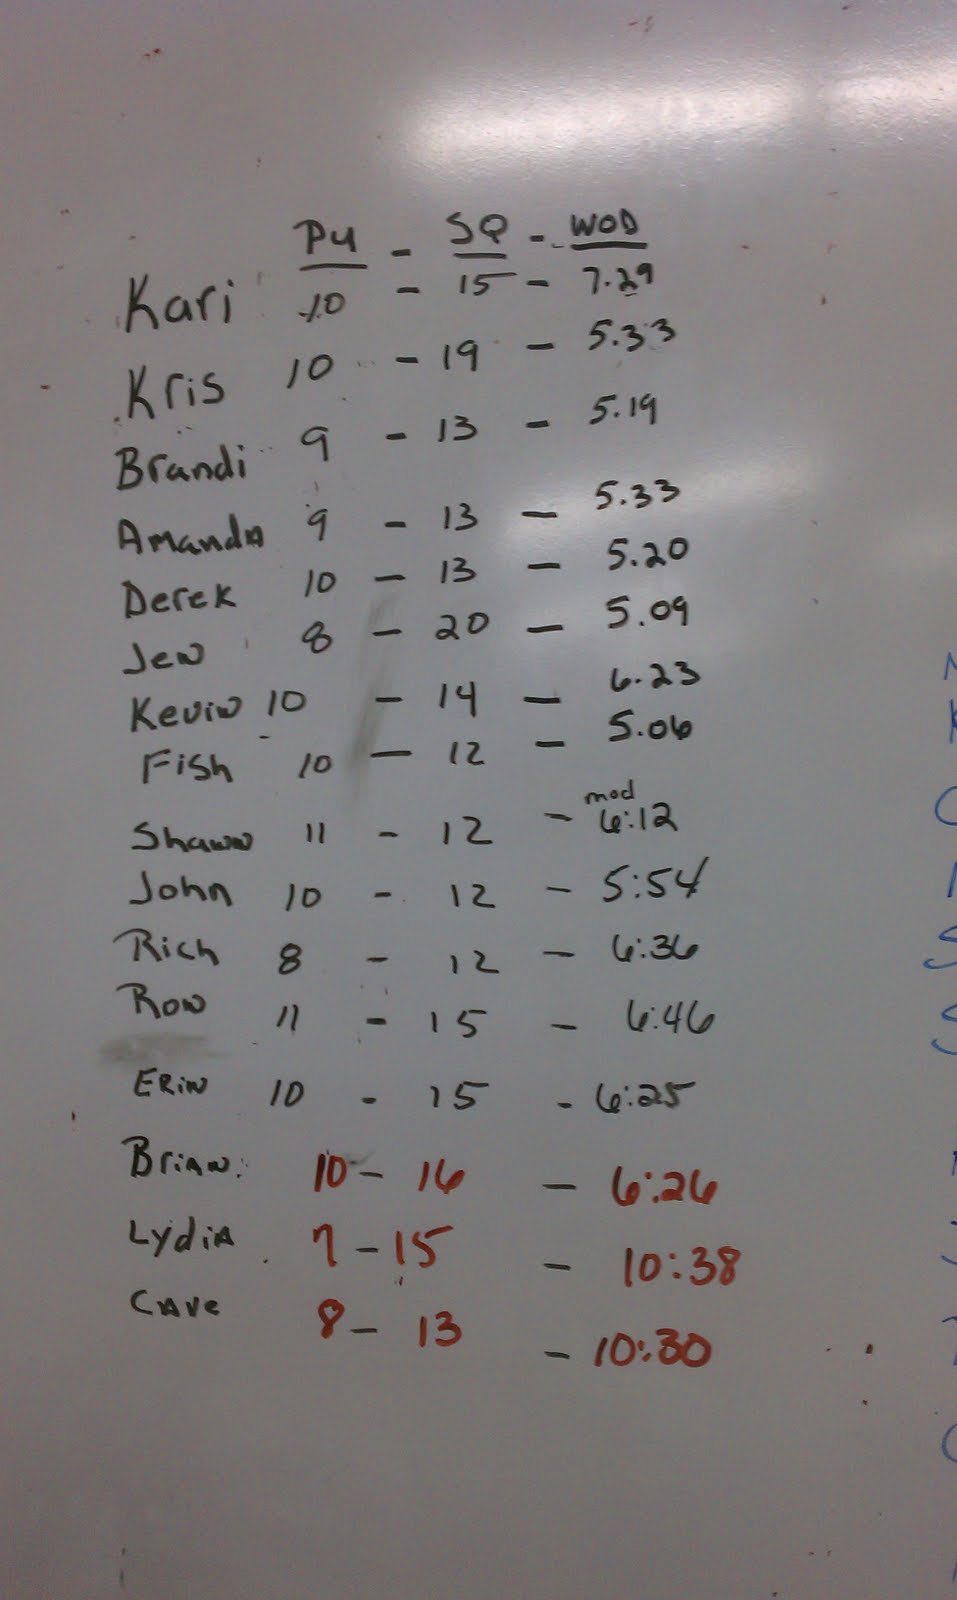 PU - SQ - WOD
Kari 10 - 15 - 7.29
Kris 10 - 19 - 5.33
Brandi 9 - 13 - 5.19
Amanda 9 - 13 - 5.33
Derek 10 - 13 - 5.20
Jen 8 - 20 - 5.09
Kevin 10 - 14 - 6.23
Fish 10 - 12 - 5.06
Shawn 11 - 12 - mod 6:12
John 10 - 12 - 5:54
Rich 8 - 12 - 6:36
Ron 11 - 15 - 6:46
Erin 10 - 15 - 6:25
Brian 10 - 16 - 6:26
Lydia 7 - 15 - 10:38
Cave 8 - 13 - 10:30